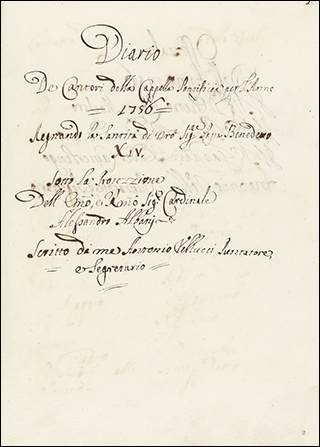 Diario
De Cantori della Cappella Pontificia per l'Anno
1756
Regnando la Santità di Nro Sig. Papa Benedetto
XIV.
Sotto la Protezzione
Dell' Emo, e Rmo Sig. Cardinale
Alessandro Albani
Scritto da me Antonio Vellucci Puntatore,
e Segretario
2